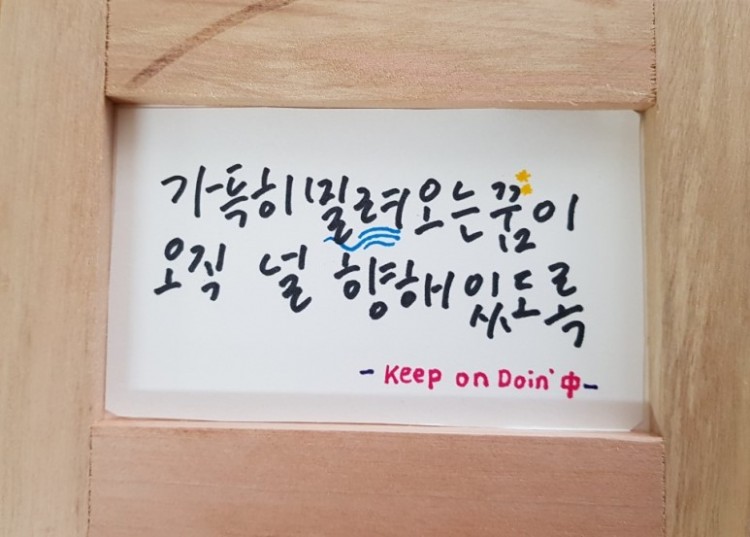 가득히 밀려오는 꿈이
오직 널 향해 있도록
- Keep on Doin' 中 -